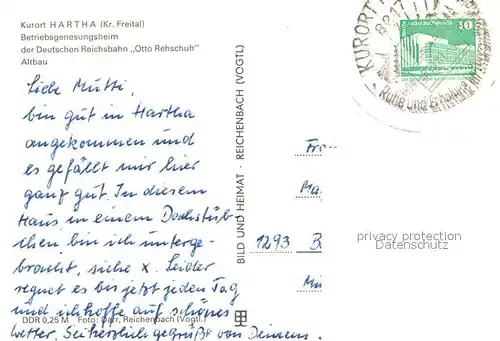 Kurort HARTHA (Kr. Freital)
Betriebsgenesungsheim
der Deutschen Reichsbahn „Otto Rehschuh"
Altbau
Liebe Mutti,
bin gut in Hartha
angekommen und
es gefällt mir hier
ganz gut. In diesem
Haus in einem Dachstüb
chen bin ich unterge-
bracht, siehe x. Leider
regnet es bis jetzt jeden Tag
und ich hoffe auf schönes
Wetter. Sei herzlich gegrüßt von Deinem
DDR 0,25 M Foto: Darr, Reichenbach (Vogtl.)
BILD UND HEIMAT · REICHENBACH (VOGTL)
KURORT
8217
10
Ruhe und Erholung
Fra
Ma
1293 B
Mü
privacy protection
Datenschutz